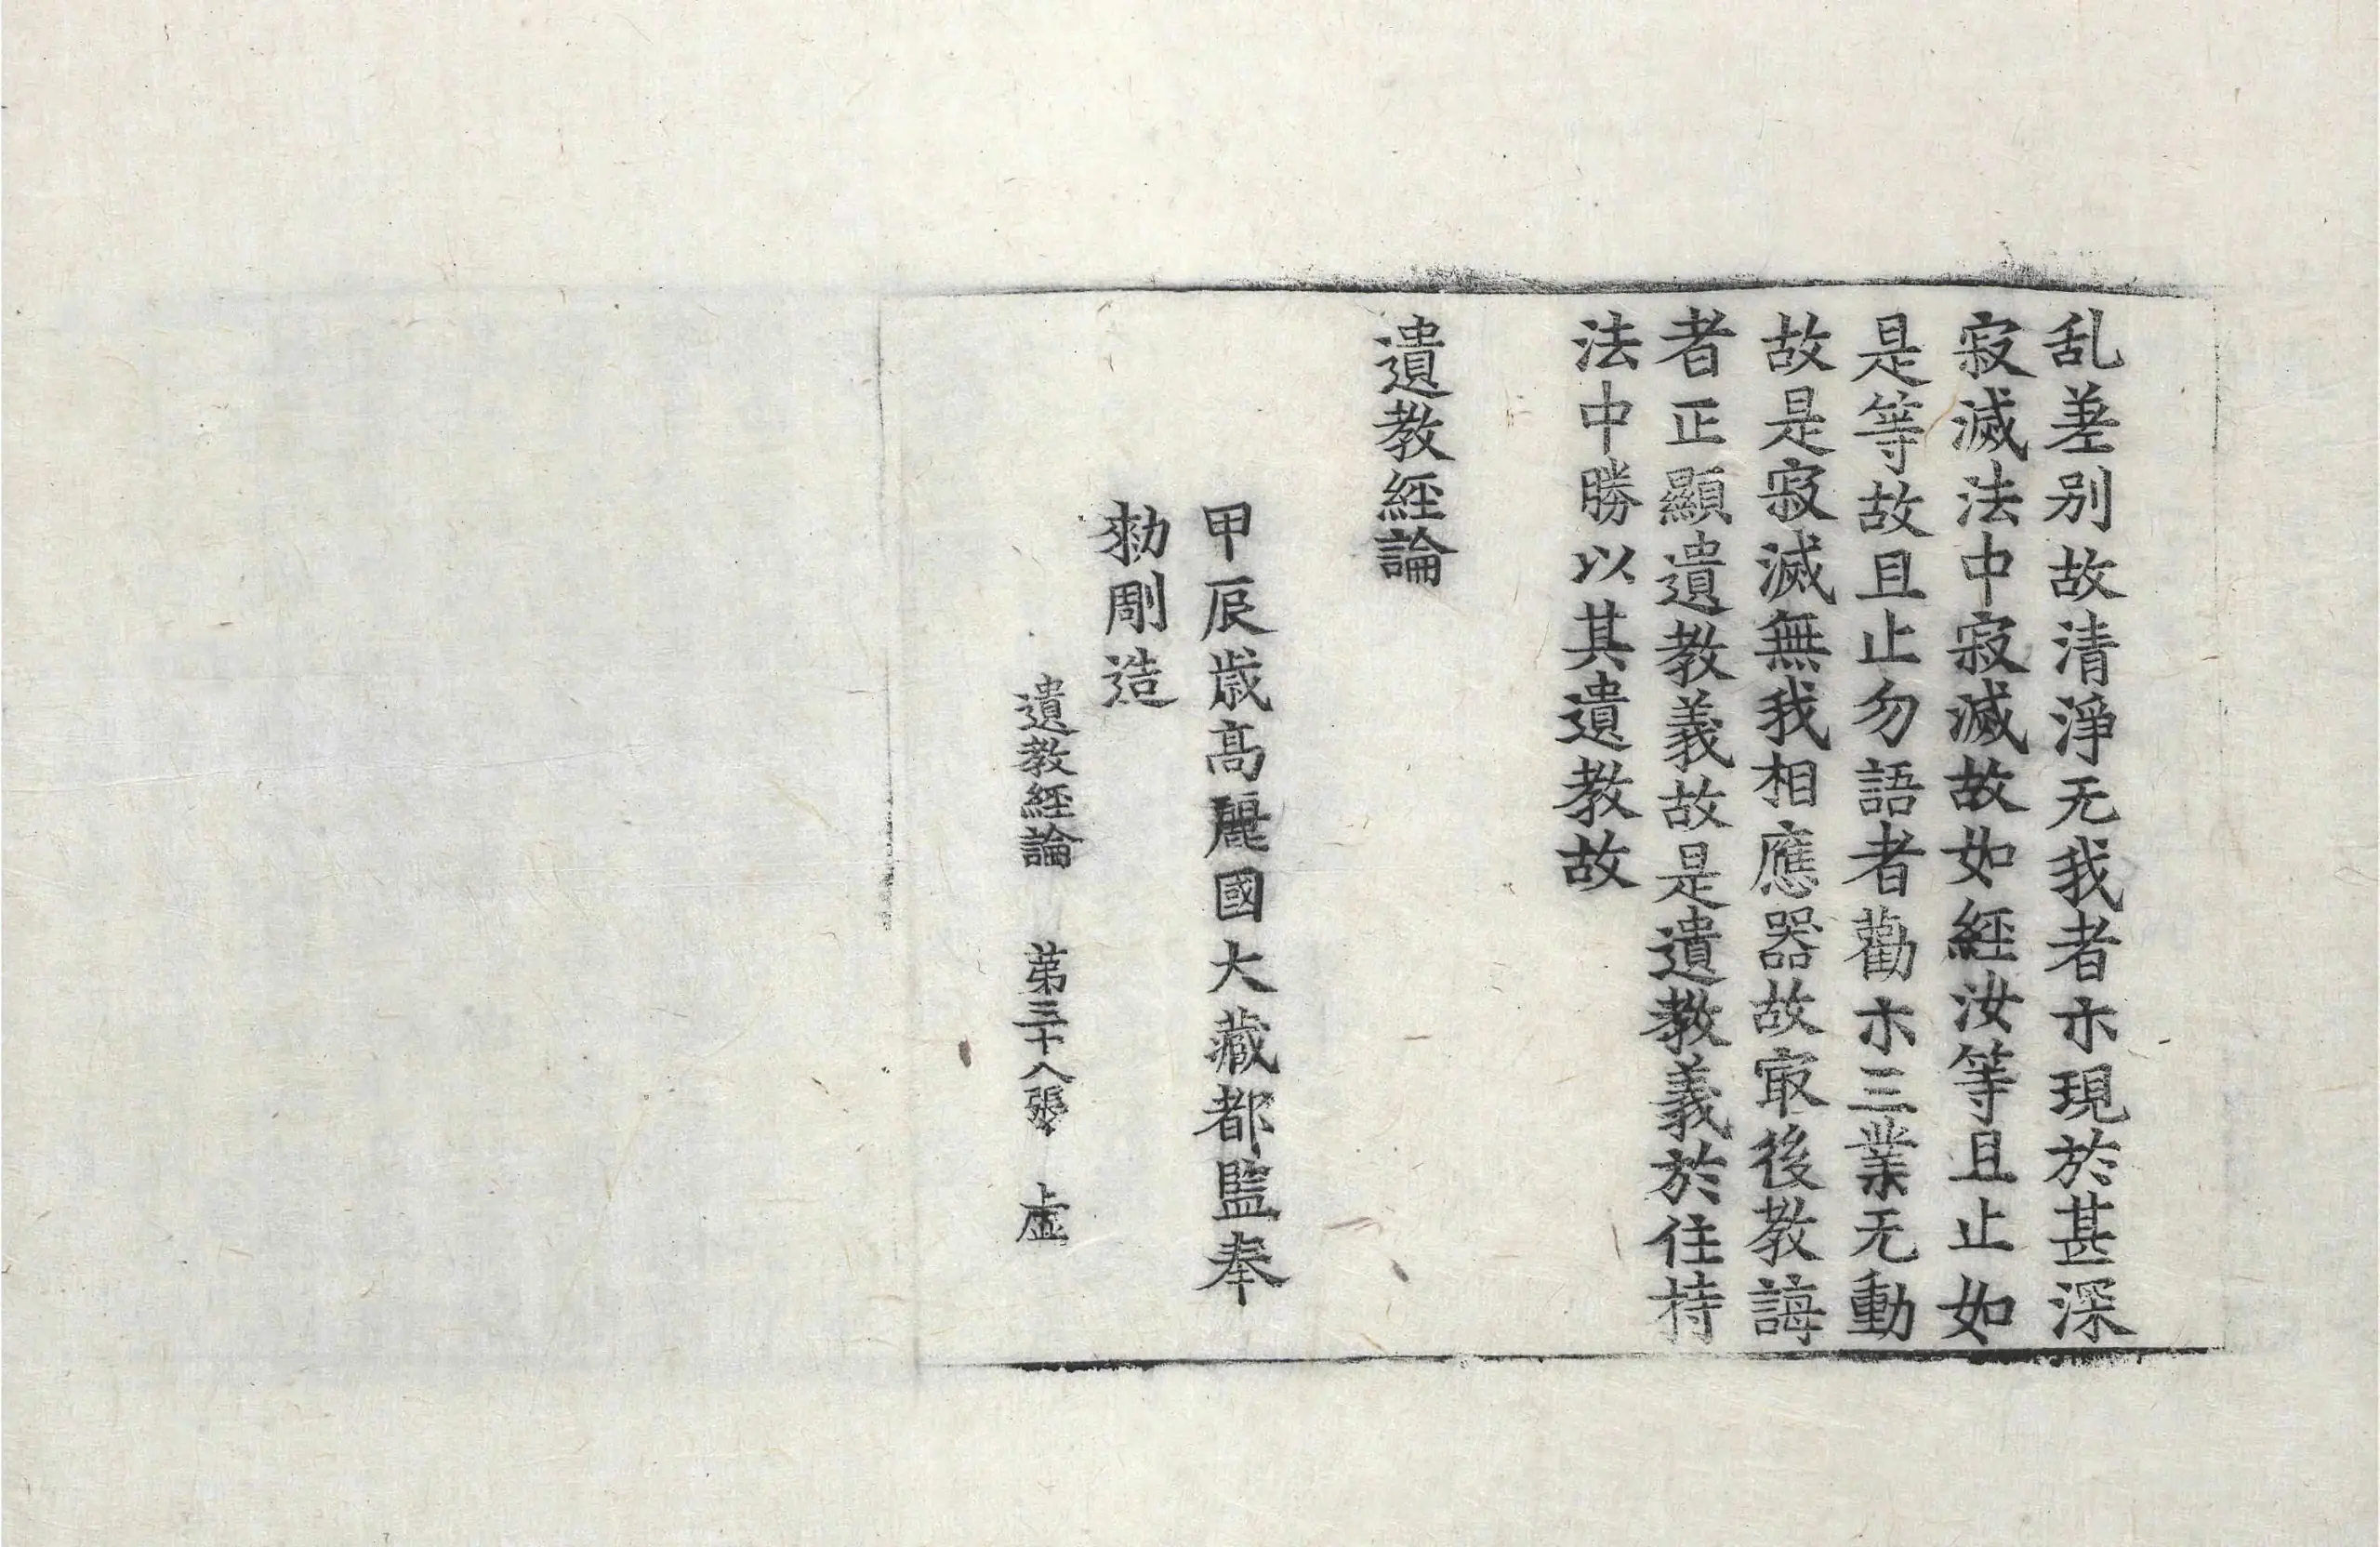 乱差别故清淨无我者示現於甚深
寂滅法中寂滅故如經汝等且止如
是等故且止勿語者勸示三業无動
故是寂滅無我相應器故㝡後教誨
者正顯遺教義故是遺教義於住持
法中勝以其遺教故
遺教經論
甲辰歳高麗國大藏都監奉
勑剛造
遺教經論 苐三十八張 虛